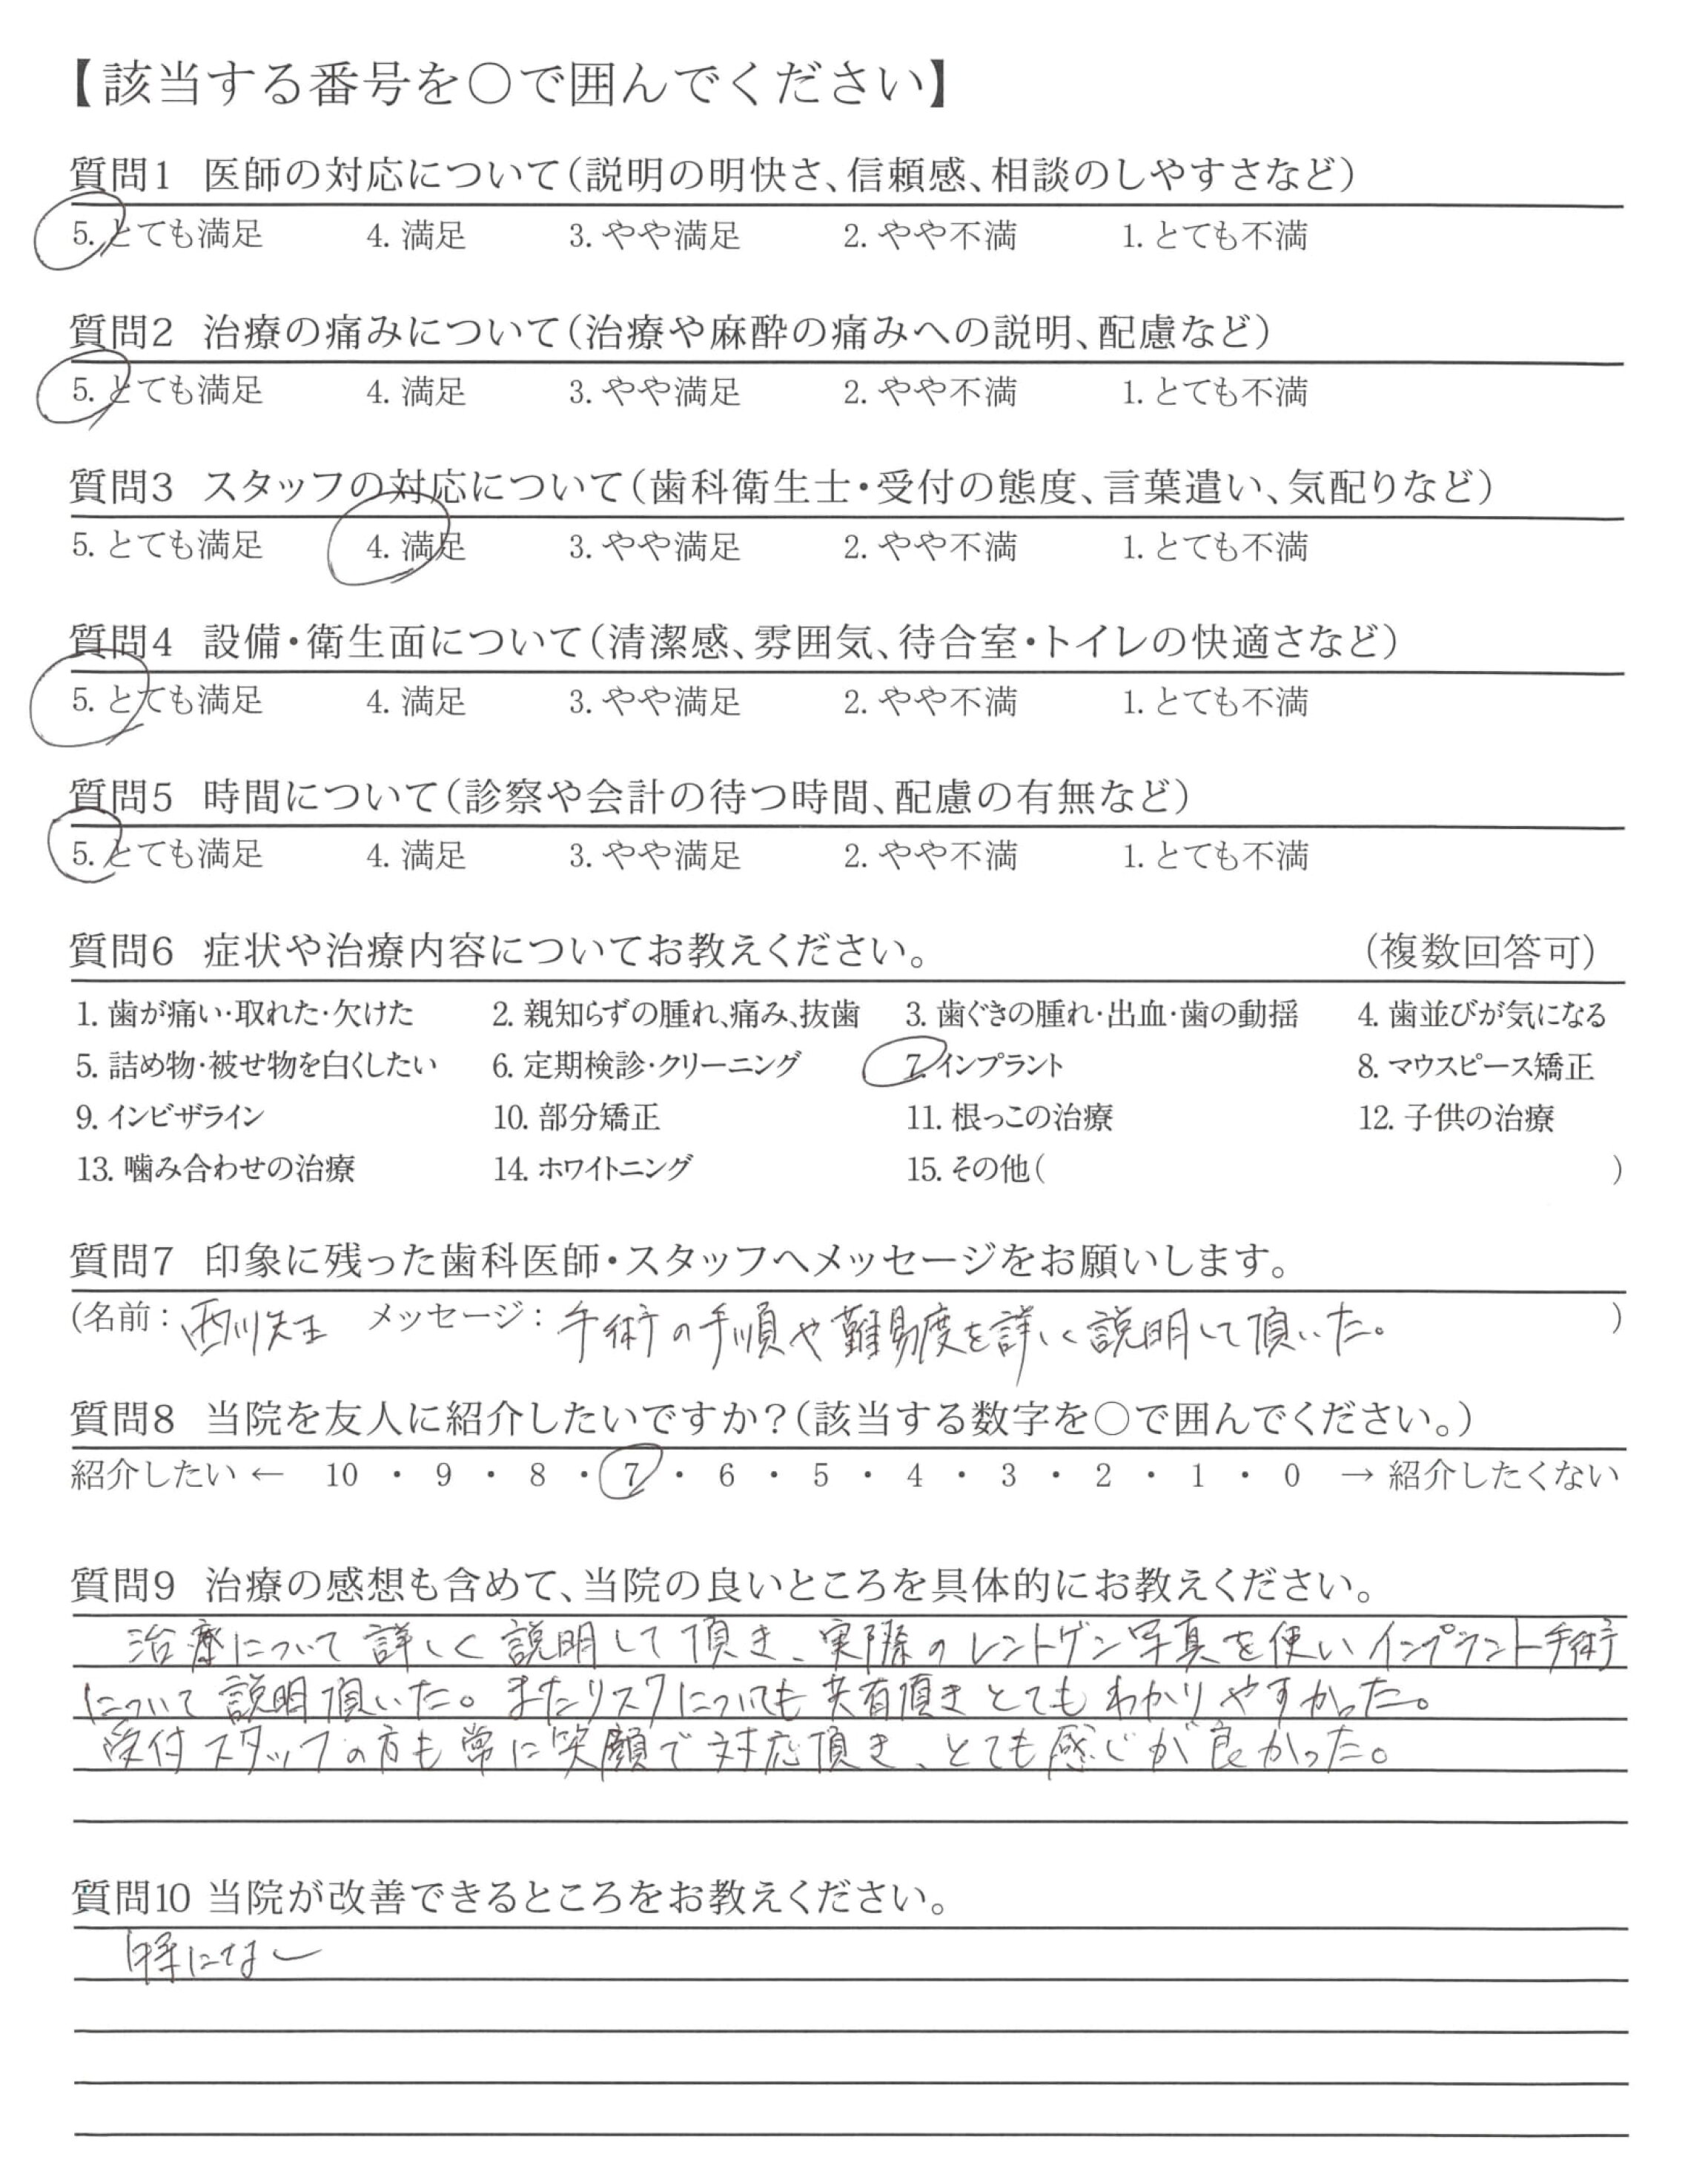 【該当する番号を〇で囲んでください】
質問1 医師の対応について(説明の明快さ、信頼感、相談のしやすさなど)
5. とても満足 4. 満足 3. やや満足 2. やや不満 1. とても不満
質問2 治療の痛みについて(治療や麻酔の痛みへの説明、配慮など)
5. とても満足 4. 満足 3. やや満足 2. やや不満 1. とても不満
質問3 スタッフの対応について(歯科衛生士・受付の態度、言葉遣い、気配りなど)
5. とても満足 4. 満足 3. やや満足 2. やや不満 1. とても不満
質問4 設備・衛生面について(清潔感、雰囲気、待合室・トイレの快適さなど)
5. とても満足 4. 満足 3. やや満足 2. やや不満 1. とても不満
質問5 時間について(診察や会計の待つ時間、配慮の有無など)
5. とても満足 4. 満足 3. やや満足 2. やや不満 1. とても不満
質問6 症状や治療内容についてお教えください。 (複数回答可)
1. 歯が痛い・取れた・欠けた 2. 親知らずの腫れ、痛み、抜歯 3. 歯ぐきの腫れ・出血・歯の動揺 4. 歯並びが気になる
5. 詰め物・被せ物を白くしたい 6. 定期検診・クリーニング 7. インプラント 8. マウスピース矯正
9. インビザライン 10. 部分矯正 11. 根っこの治療 12. 子供の治療
13. 噛み合わせの治療 14. ホワイトニング 15. その他( )
質問7 印象に残った歯科医師・スタッフへメッセージをお願いします。
(名前: 西川先生 メッセージ: 手術の手順や難易度を詳しく説明して頂いた。 )
質問8 当院を友人に紹介したいですか?(該当する数字を〇で囲んでください。)
紹介したい ← 10 ・ 9 ・ 8 ・ 7 ・ 6 ・ 5 ・ 4 ・ 3 ・ 2 ・ 1 ・ 0 → 紹介したくない
質問9 治療の感想も含めて、当院の良いところを具体的にお教えください。
治療について詳しく説明して頂き、実際のレントゲン写真を使いインプラント手術
について説明頂いた。またリスクについても共有頂きとてもわかりやすかった。
受付スタッフの方も常に笑顔で対応頂き、とても感じが良かった。
質問10 当院が改善できるところをお教えください。
特になし